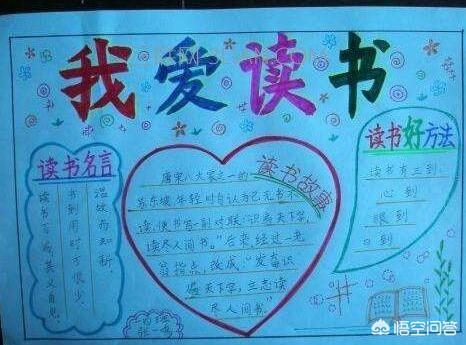 我爱读书
读书名言
温故而知新,
书到用时方恨少。
读书百遍,其义自见。
读书故事
唐宋八大家之一的
苏东坡年轻时自认为已无书不
读,便书写一副对联:"识遍天下字,
读尽人间书。"后来经过一老
翁指点,改成,"发奋识
遍天下字,立志读
尽人间书。"
读书好方法
读书有三到:
心到
眼到
口到
悟空问答